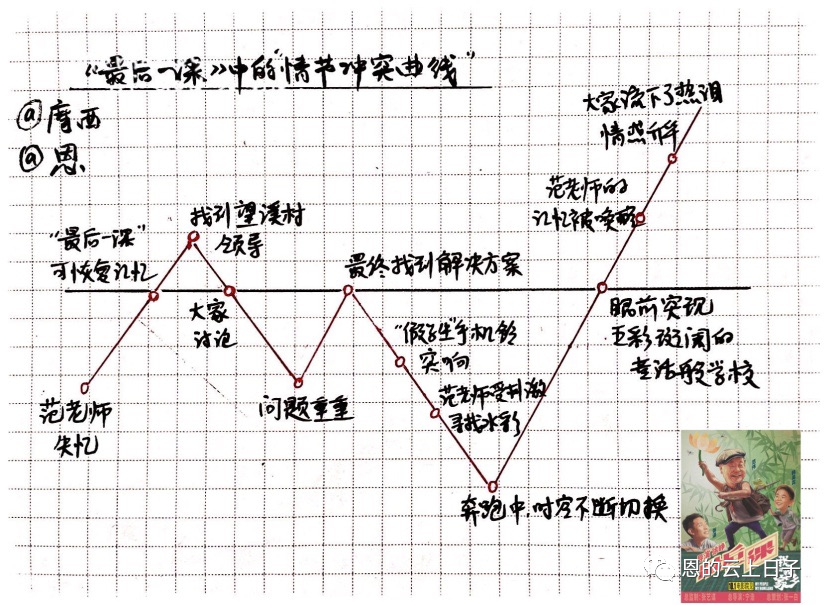 《最后一课》中的"情节冲突曲线"
@摩西
@恩
大家流下了热泪
情然解
范老师的
记忆被唤醒
"最后一课"
可恢复记忆
找到望溪村
领导
最终找到解决方案
大家
讨论
眼前实现
五彩斑斓的
童话般学校
"假学生"手机铃
突响
范老师受刺激
寻找水彩
范老师
失忆
问题重重
奔跑中,时空不断切换
恩的云上日子